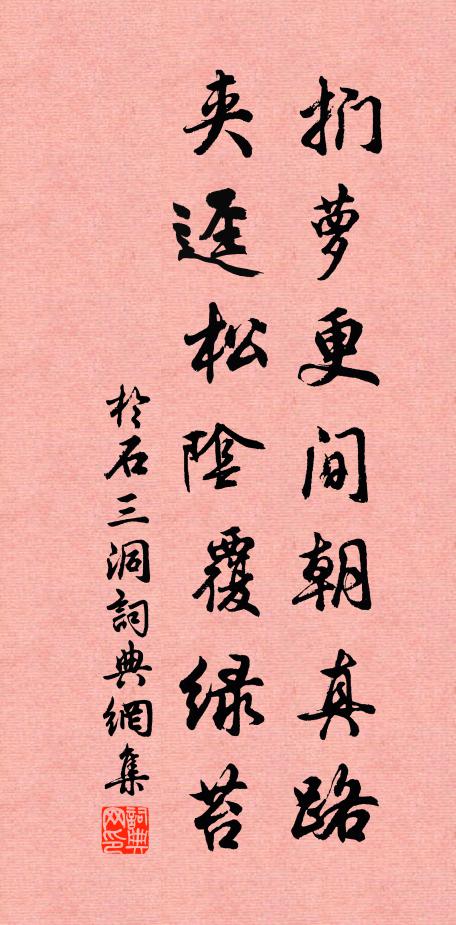 捫萝更间朝真路
夾逕松陰覆緑苔
於石三洞詞典網集
詞典网印